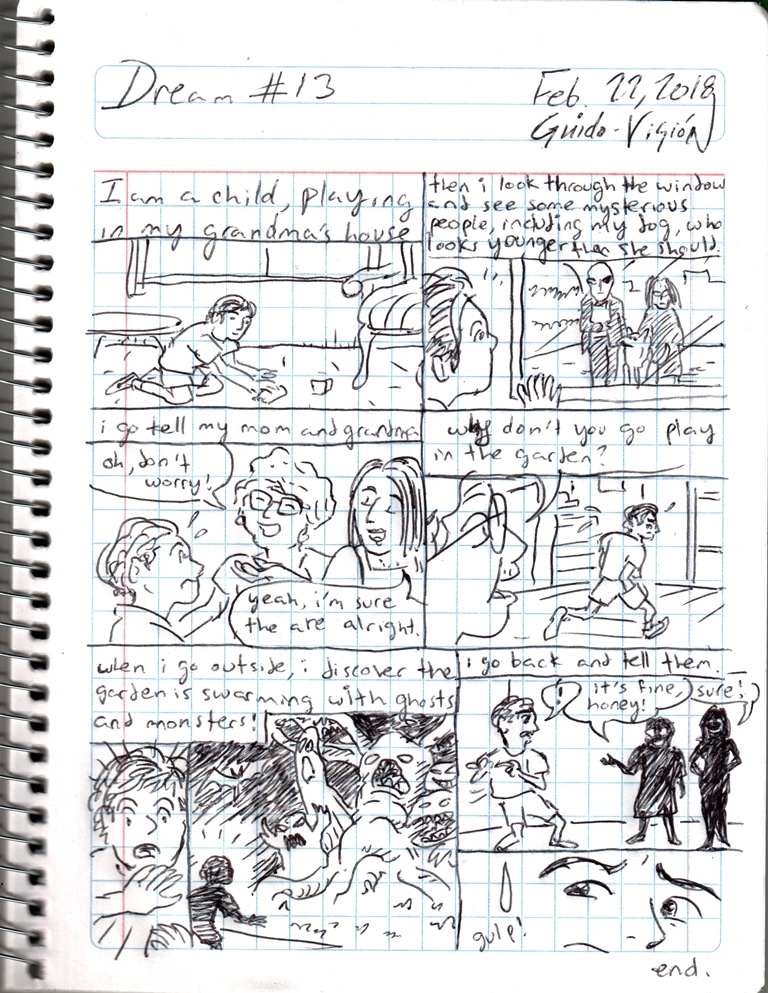 Dream #13
Feb. 22, 2018
Guido-Visión
I am a child, playing
in my grandma's house
then i look through the window
and see some mysterious
people, including my dog, who
looks younger than she should.
i go tell my mom and grandma
oh, don't
worry!
yeah, i'm sure
the are alright.
why don't you go play
in the garden?
when i go outside, i discover the
garden is swarming with ghosts
and monsters!
i go back and tell them.
!
it's fine,
honey!
sure!
gulp!
end.